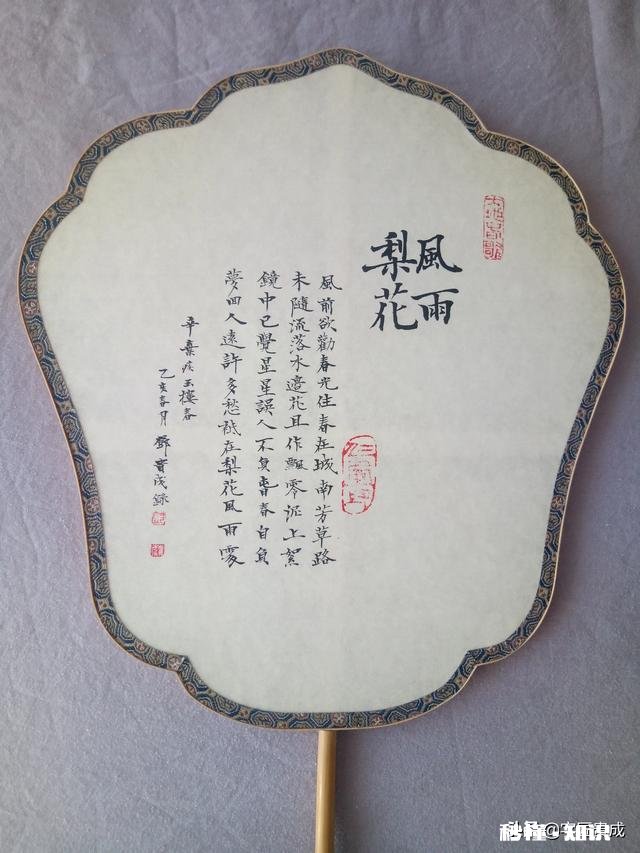 風雨
梨花
風前欲勸春光住春在城南芳草路
未隨流落水邊花且作飄零泥上絮
鏡中已覺星星誤人不負春春自負
夢回人遠許多愁祇在梨花風雨處
辛棄疾玉樓春
乙亥春月 鄧書成錄